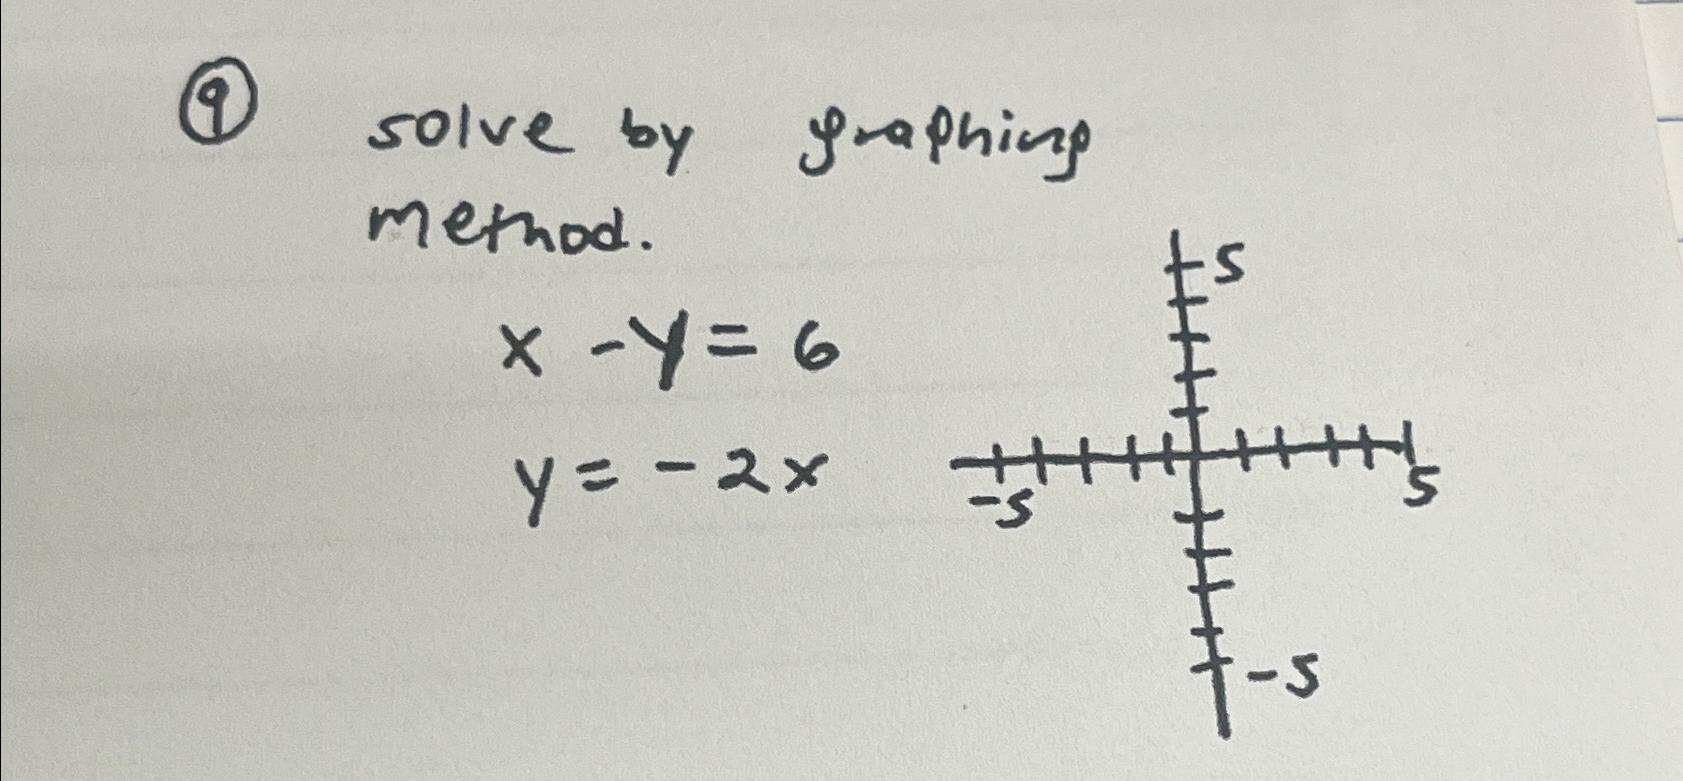 9 solve by graphing
method.
x - y = 6
y = - 2x
5
-5
5
-5